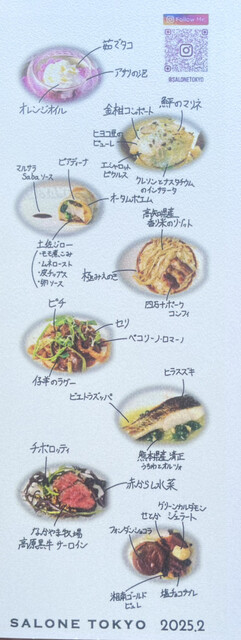 Follow Me!
@SALONETOKYO
茹マタコ
アサリの泡
オレンジオイル
金柑コンポート
鮮のマリネ
ヒヨコ豆の
ピューレ
エシャロット
ピクルス
クレソンとナスタチウム
のインサラータ
マルサラ
Sabaソース
ピアディーナ
オータムポエム
土佐ジロー
・モモ煮こみ
・ムネロースト
・皮チップス
・卵ソース
高知県産
香り米のリゾット
極みえのき
四万十ポーク
コンフィ
ピチ
セリ
ペコリーノ・ロマーノ
仔羊のラグー
ヒラスズキ
ズッパ
熊本県産
チポロッティ
赤からし水菜
なかやま牧場
高原黒牛 サーロイン
グリーンカルダモン
せとか ジェラート
フォンダンショコラ
湘南ゴールド
ピュレ
塩チョコサブレ
SALONE TOKYO 2025.2